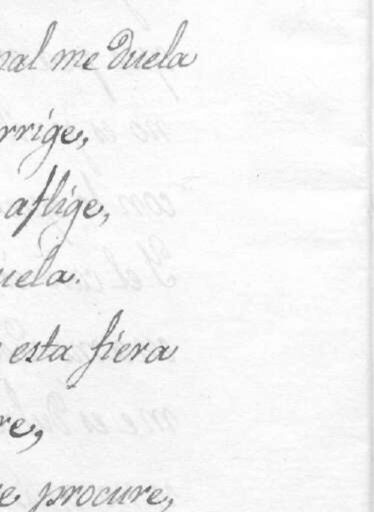 nal me duela
rrige,
aflige,
uela.
esta fiera
re,
e procure,